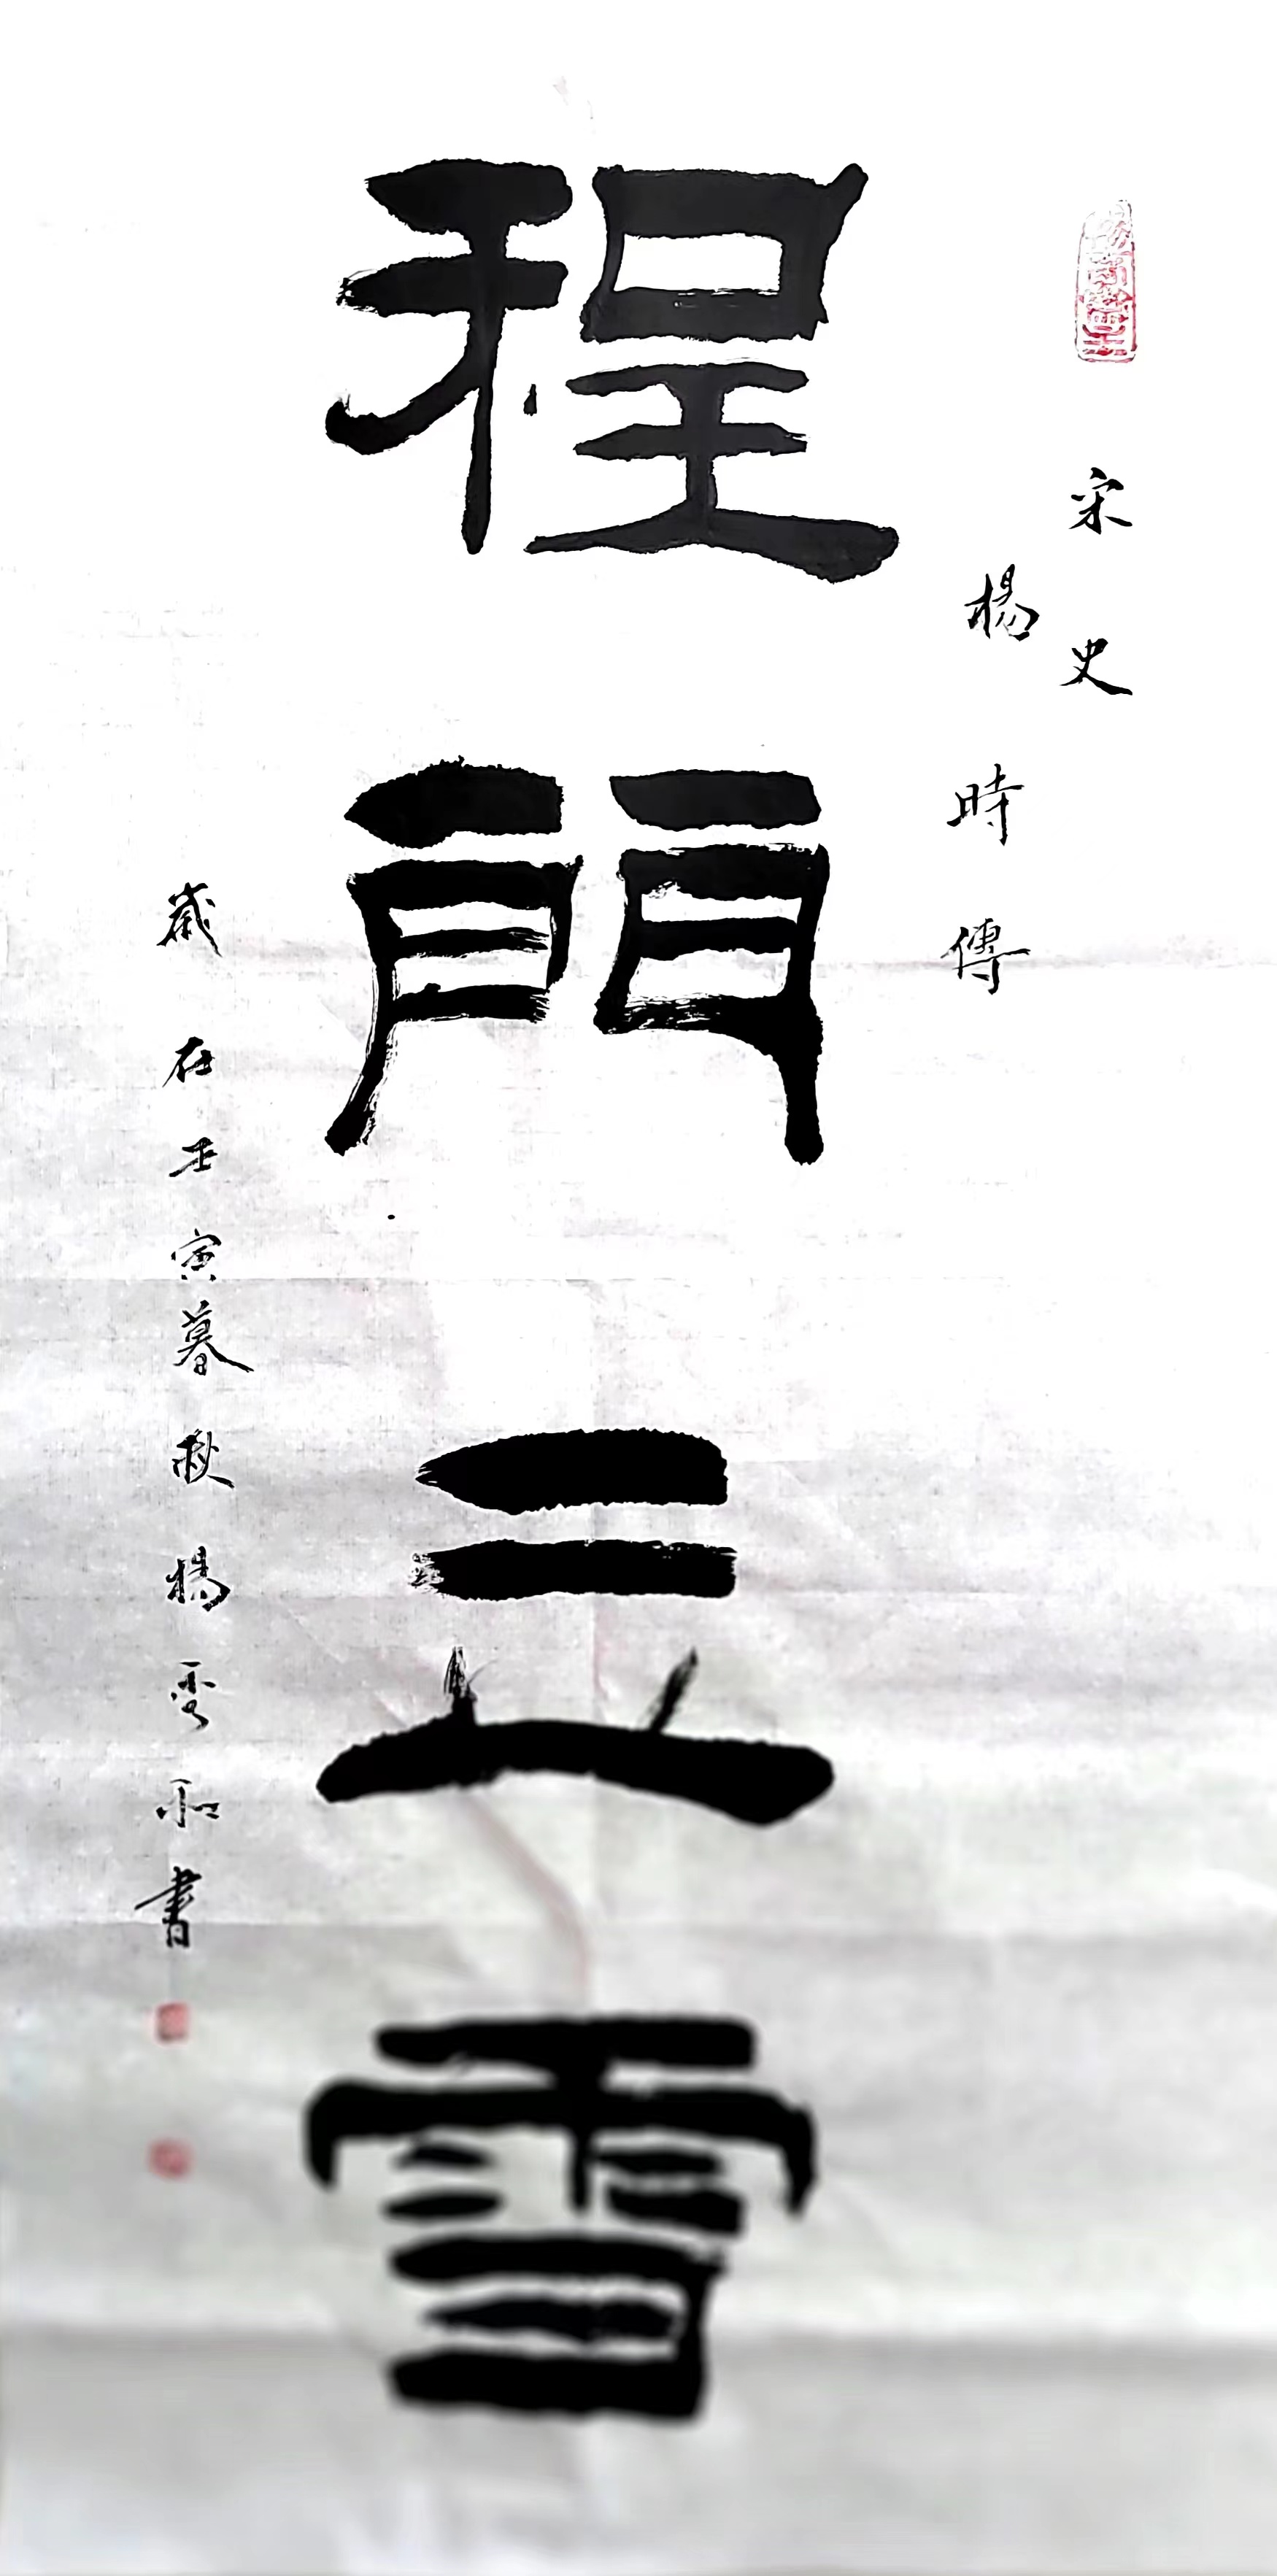 宋史
楊時傳
程門立雪
歲在壬寅暮秋楊雲和書